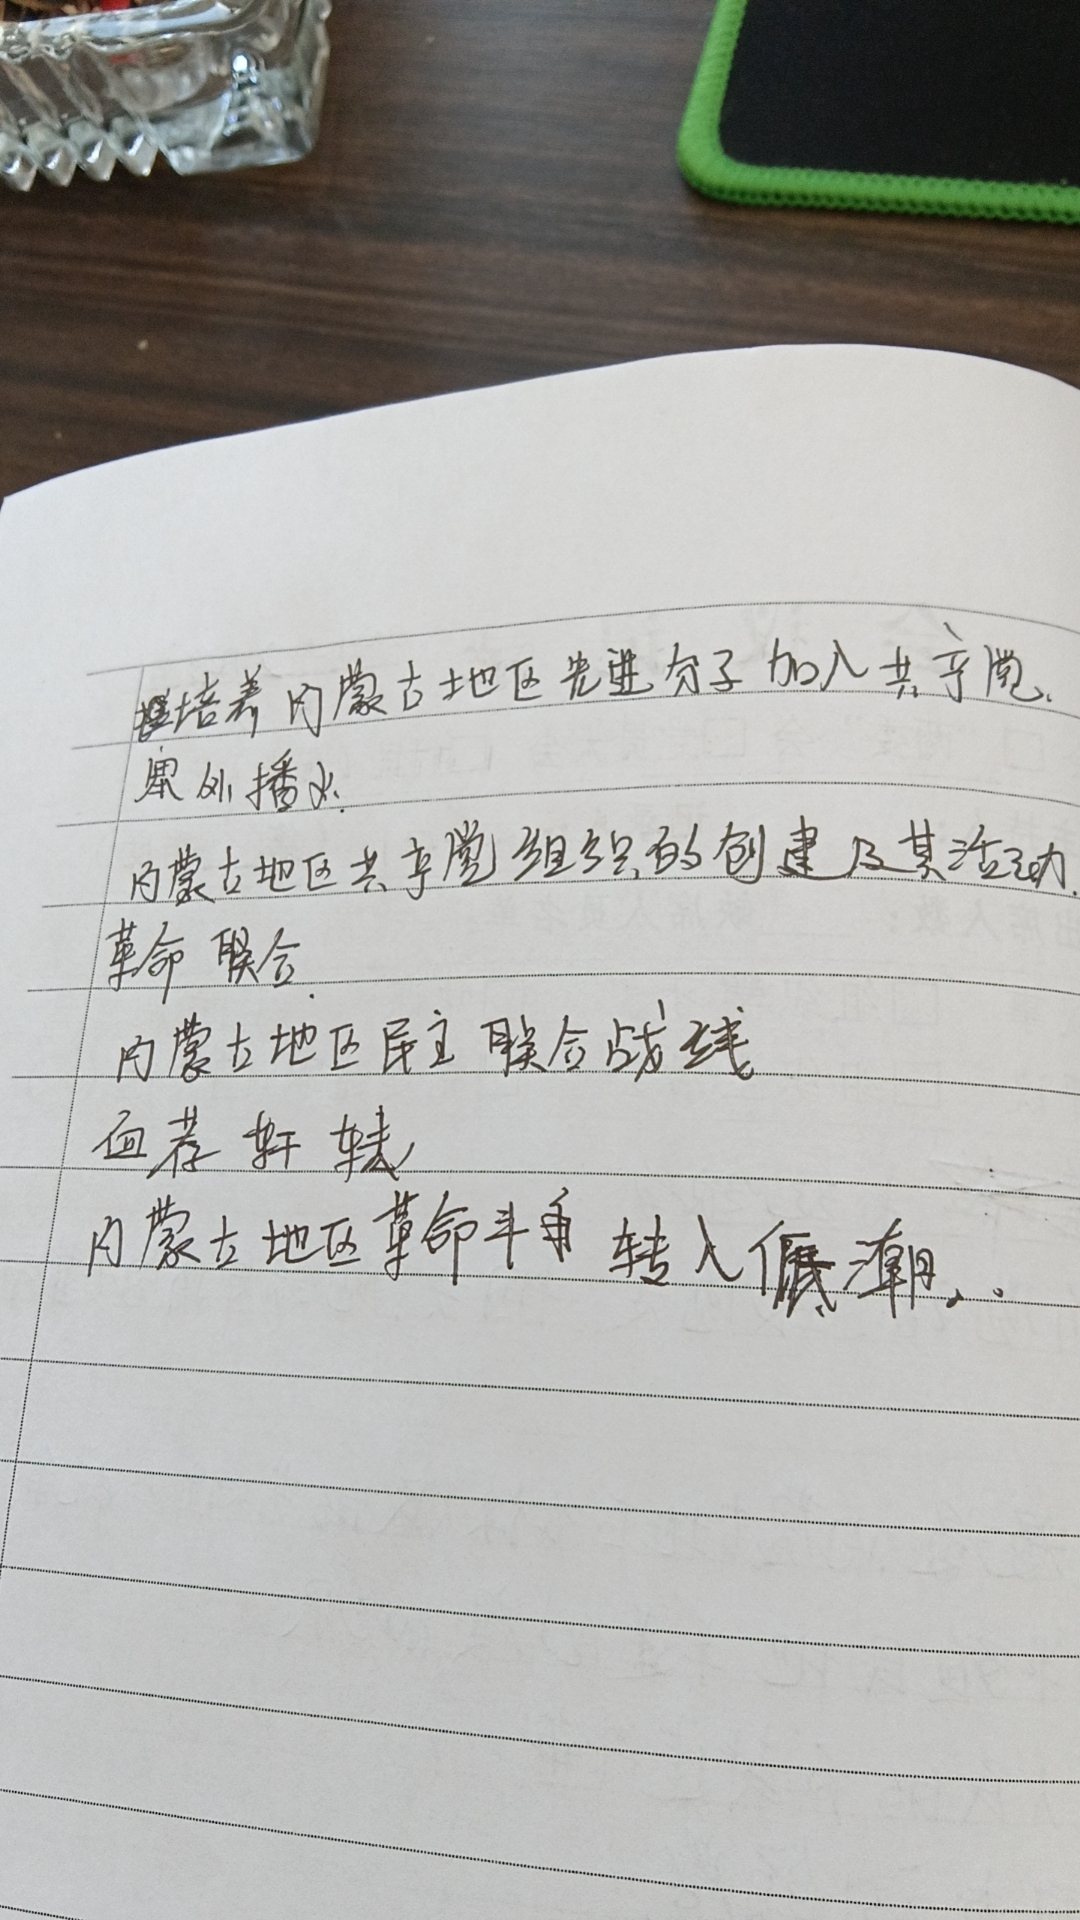 培养内蒙古地区先进分子加入共产党.
塞外播火.
内蒙古地区共产党组织的创建及其活动.
革命联合.
内蒙古地区民主联合战线
血荐轩辕
内蒙古地区革命斗争转入低潮...